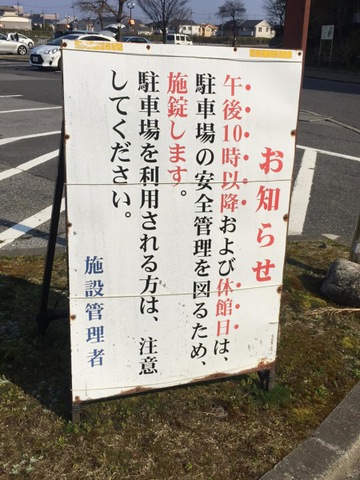 お知らせ
午後10時以降および休館日は、
駐車場の安全管理を図るため、
施錠します。
駐車場を利用される方は、注意
してください。
施設管理者